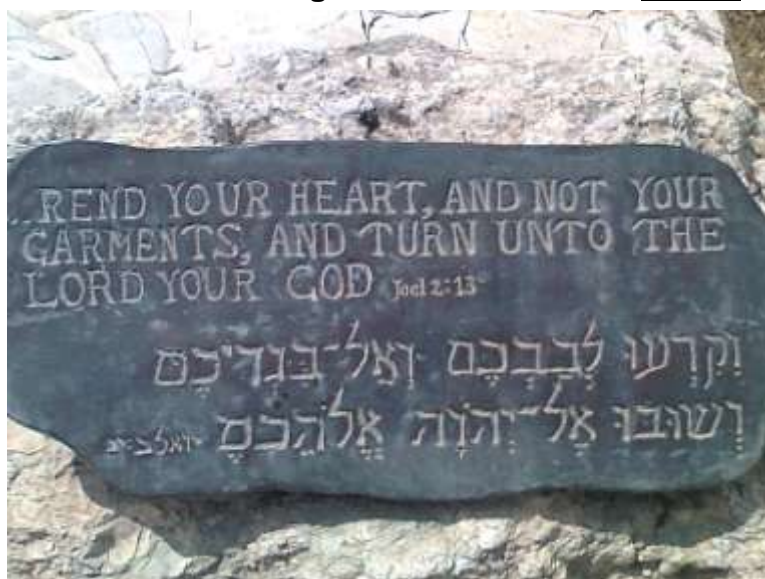 ...REND YOUR HEART, AND NOT YOUR
GARMENTS, AND TURN UNTO THE
LORD YOUR GOD Joel 2:13
וְקִרְעוּ לְבַבְכֶם וְאַל־בִּגְדֵיכֶם
וְשׁוּבוּ אֶל־יְהוָה אֱלֹהֵיכֶם